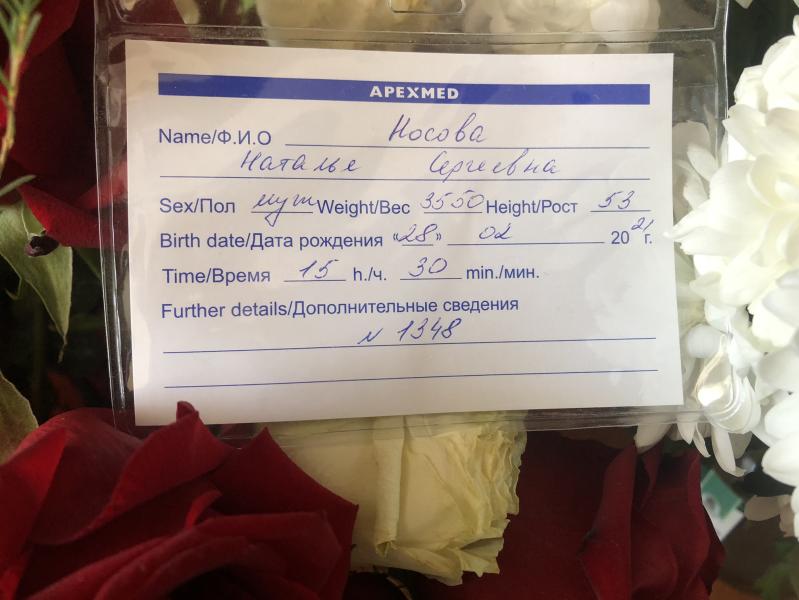 APEXMED
Name/Ф.И.О Носова
Наталье Сергеевна
Sex/Пол муж Weight/Вес 3550 Height/Рост 53
Birth date/Дата рождения «28» 02 2021 г.
Time/Время 15 h./ч. 30 min./мин.
Further details/Дополнительные сведения
N 1348